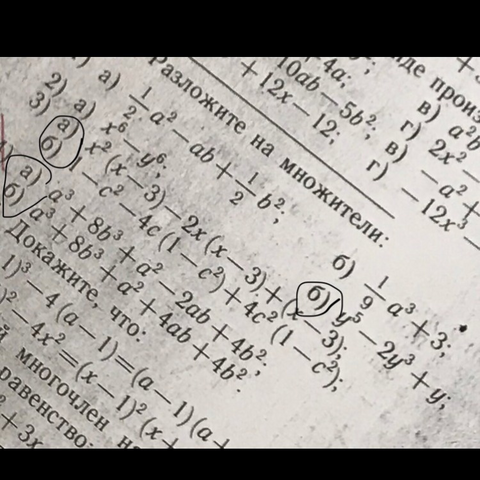 де произ
4a; в) a²b
10ab − 5b²; г) 2x² −
+ 12x − 12; в) − a² +
г) − 12x³ −
Разложите на множители:
а) 1/2 a² − ab + 1/2 b²; б) 1/9 a³ + 3;
2) а) x⁶ − y⁶; б) y⁵ − 2y³ + y;
3) а) x² (x − 3) − 2x (x − 3) + (x − 3);
б) 1 − c² − 4c (1 − c²) + 4c² (1 − c²);
а) a³ + 8b³ + a² − 2ab + 4b²;
б) a³ + 8b³ + a² + 4ab + 4b².
Докажите, что:
1)³ − 4 (a − 1) = (a − 1) (a +
)² − 4x² = (x − 1)² (x +
й многочлен на
равенство:
² + 3x